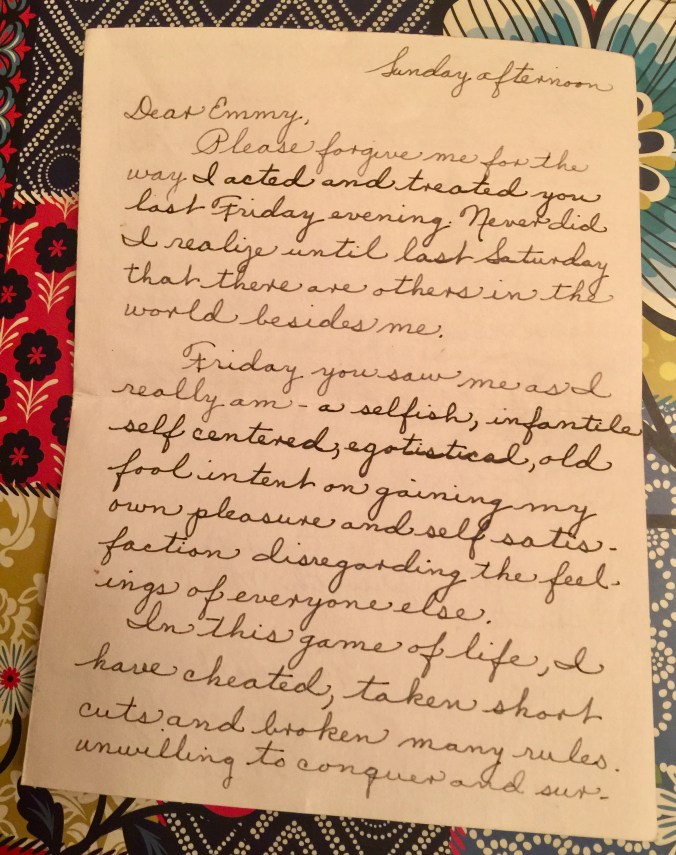 Sunday afternoon
Dear Emmy,
Please forgive me for the
way I acted and treated you
last Friday evening. Never did
I realize until last Saturday
that there are others in the
world besides me.
Friday you saw me as I
really am - a selfish, infantile
self centered, egotistical, old
fool intent on gaining my
own pleasure and self satis-
faction disregarding the feel-
ings of everyone else.
In this game of life, I
have cheated, taken short
cuts and broken many rules.
unwilling to conquer and sur-